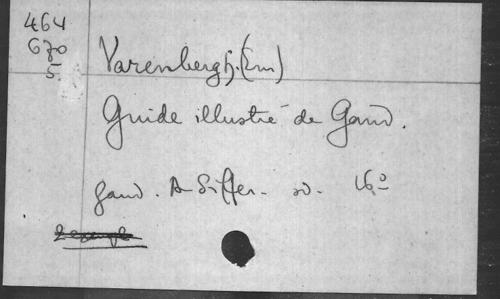 464
670
5.
Varenbergh. (Em)
Guide illustré de Gand.
Gand. A Siffer. sd. 16º
2 exempl